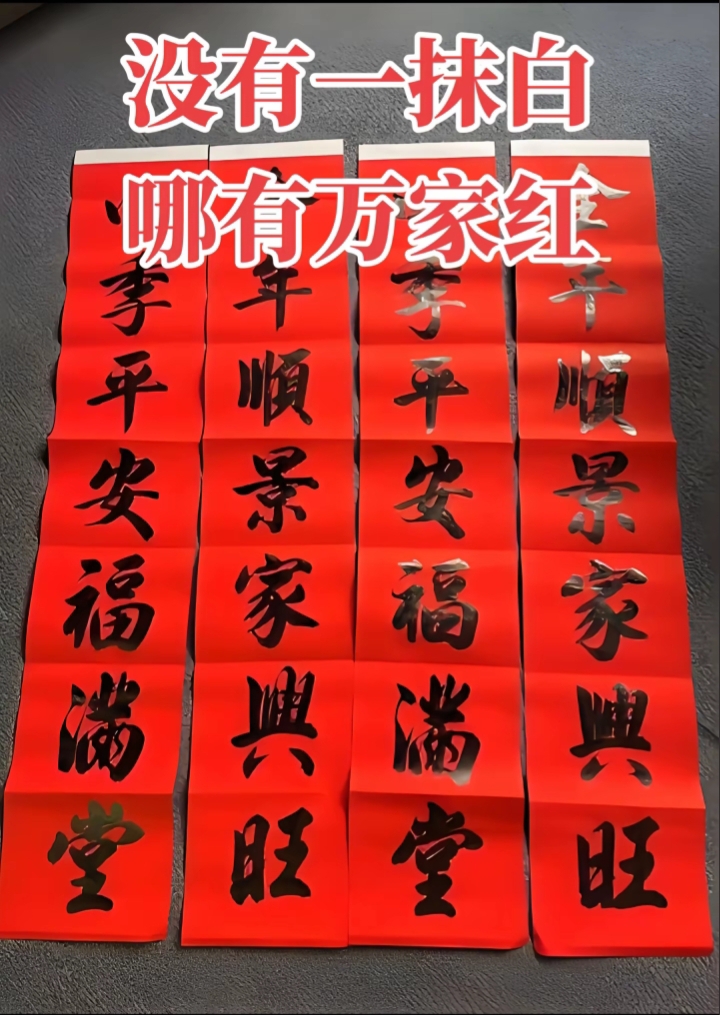 没有一抹白
哪有万家红
季平安福滿堂
年順景家興旺
季平安福滿堂
全年順景家興旺